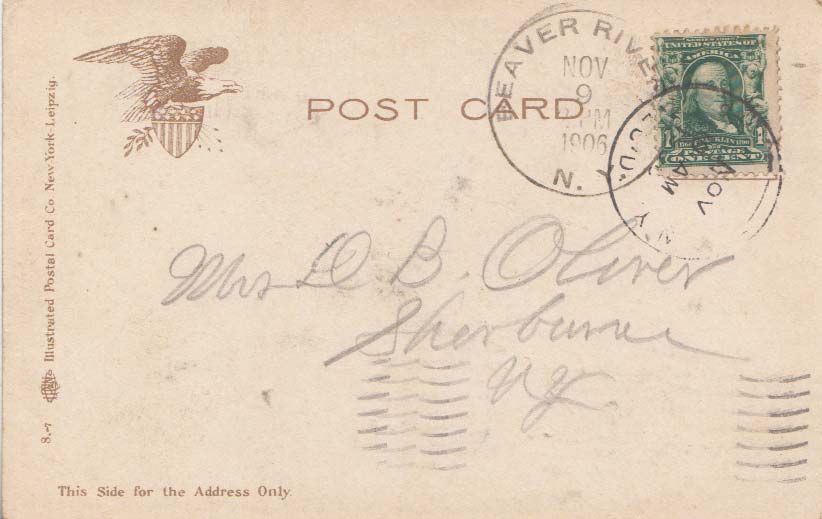 POST CARD
BEAVER RIVER
NOV
9
PM
1906
N. Y.
SERIES 1902
UNITED STATES OF
AMERICA
FRANKLIN
POSTAGE
ONE CENT
NOV
AM
N. Y.
Mrs D B. Oliver
Sherburne
N.Y.
Illustrated Postal Card Co. New-York-Leipzig.
8.-7
This Side for the Address Only.